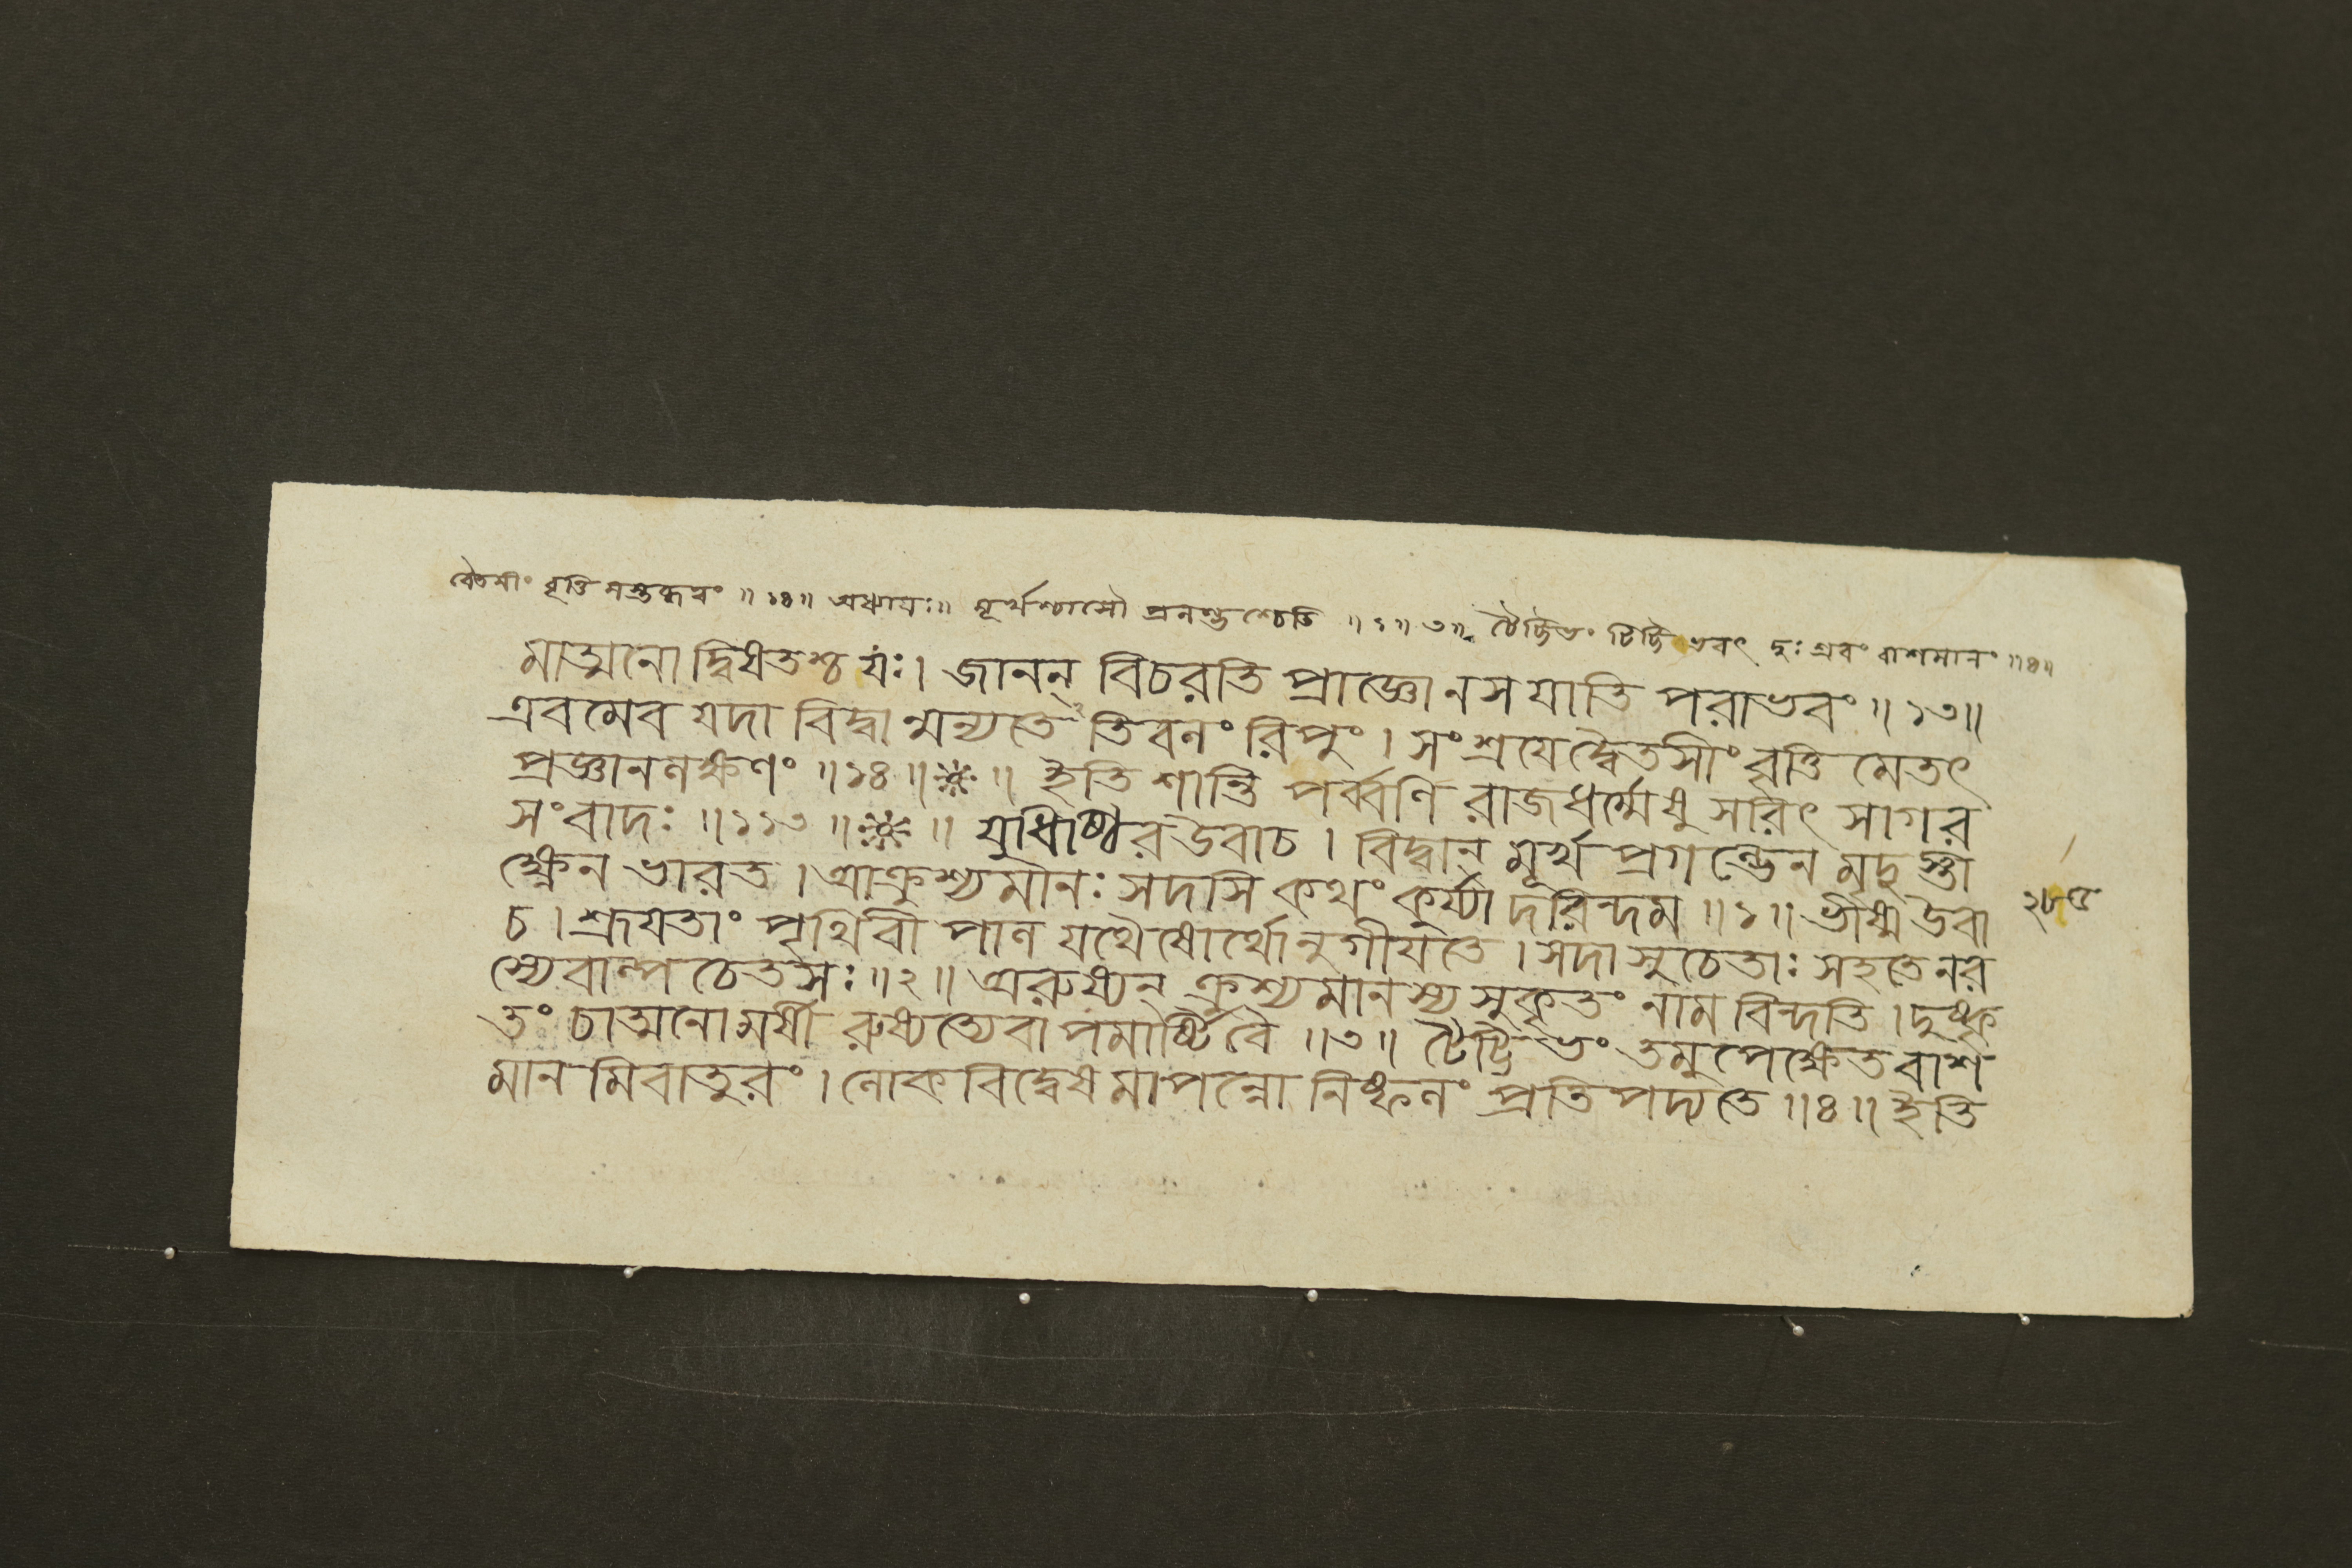 বেতসীং বৃত্তি মস্তব্ধবং ॥ ১৪ ॥ অধ্যায়ঃ ॥ মূর্খশ্চাসৌ প্রগল্ভশ্চেতি ॥ ১ ॥ ৩ ॥ টৈট্টিভং টিট্টিভবৎ দুঃশ্রবং বাশমানং ॥ ৪ ॥
মাত্মনো দ্বিষতশ্চ যঃ । জানন্ বিচরতি প্রাজ্ঞো ন স যাতি পরাভবং ॥ ১৩ ॥
এবমেব যদা বিদ্বান্মন্যতে তিবলং রিপুং । সংশ্রয়েদ্বৈতসীং বৃত্তি মেতৎ
প্রজ্ঞানলক্ষণং ॥ ১৪ ॥ ※ ॥ ইতি শান্তি পর্ব্বণি রাজধর্ম্মেষু সরিৎ সাগর
সংবাদঃ ॥ ১১৩ ॥ ※ ॥ যুধিষ্ঠির উবাচ । বিদ্বান্ মূর্খ প্রগল্ভেন মৃদুস্তী
ক্ষ্ণেন ভারত । আক্রুশ্যমানঃ সদসি কথং কুর্য্যাদরিন্দম ॥ ১ ॥ ভীষ্ম উবা
২৮৫
চ । শ্রূয়তাং পৃথিবী পাল যথৈষোর্থোনুগীয়তে । সদা সুচেতাঃ সহতে নর
স্যেবাল্প চেতসঃ ॥ ২ ॥ অরুষ্যন্ ক্রুশ্যমানস্য সুকৃতং নাম বিন্দতি । দুষ্কৃ
তং চাত্মনো মর্ষী রুষ্যত্যেবাপমার্ষ্টি বৈ ॥ ৩ ॥ টৈট্টিভং তমুপেক্ষেত বাশ
মান মিবাতুরং । লোকবিদ্বেষমাপন্নো নিষ্ফলং প্রতিপদ্যতে ॥ ৪ ॥ ইতি